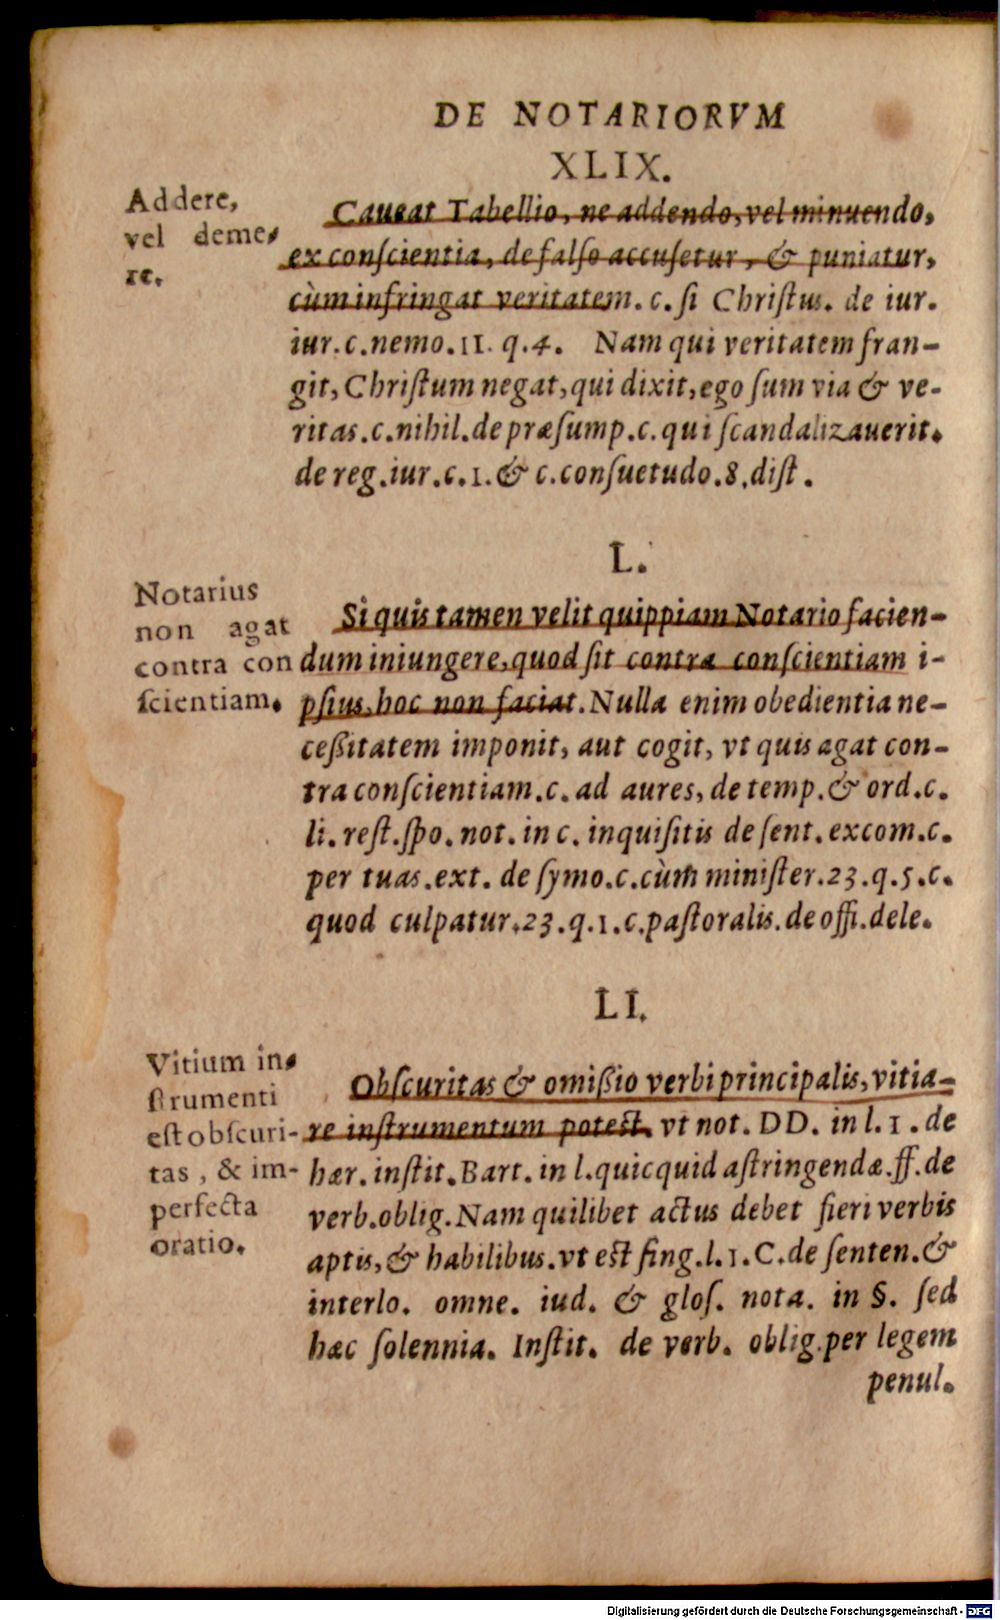 DE NOTARIORVM
XLIX.
Addere,
vel deme-
re.
Caueat Tabellio, ne addendo, vel minuendo,
ex conſcientia, de falſo accuſetur, & puniatur,
cùm infringat veritatem. c. ſi Chriſtus. de iur.
iur. c. nemo. 11. q. 4. Nam qui veritatem fran-
git, Chriſtum negat, qui dixit, ego ſum via & ve-
ritas. c. nihil. de præſump. c. qui ſcandalizauerit.
de reg. iur. c. 1. & c. conſuetudo. 8. diſt.
L.
Notarius
non agat
contra con
ſcientiam.
Si quis tamen velit quippiam Notario facien-
dum iniungere, quod ſit contra conſcientiam i-
pſius, hoc non faciat. Nulla enim obedientia ne-
ceßitatem imponit, aut cogit, vt quis agat con-
tra conſcientiam. c. ad aures, de temp. & ord. c.
li. reſt. ſpo. not. in c. inquiſitis de ſent. excom. c.
per tuas. ext. de ſymo. c. cùm miniſter. 23. q. 5. c.
quod culpatur. 23. q. 1. c. paſtoralis. de offi. dele.
LI.
Vitium in-
ſtrumenti
eſt obſcuri-
tas, & im-
perfecta
oratio.
Obſcuritas & omißio verbi principalis, vitia-
re inſtrumentum poteſt. vt not. DD. in l. 1. de
hær. inſtit. Bart. in l. quicquid aſtringendæ. ff. de
verb. oblig. Nam quilibet actus debet fieri verbis
aptis, & habilibus. vt eſt ſing. l. 1. C. de ſenten. &
interlo. omne. iud. & gloſ. nota. in §. ſed
hæc ſolennia. Inſtit. de verb. oblig. per legem
penul.
Digitalisierung gefördert durch die Deutsche Forschungsgemeinschaft - DFG